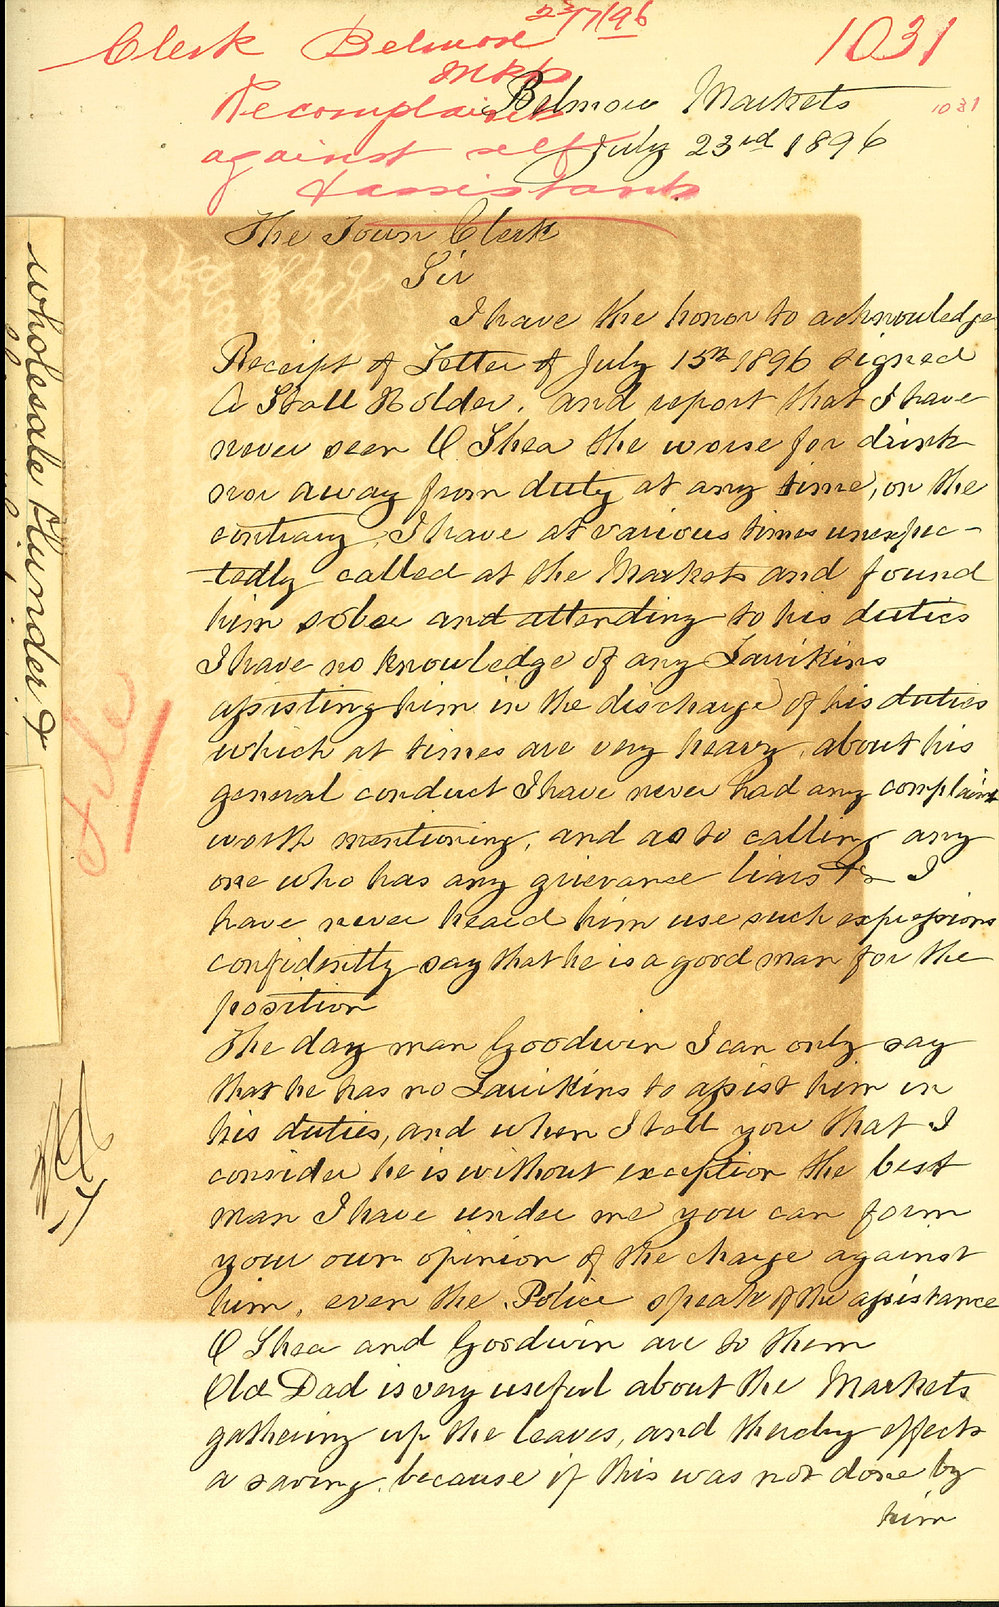 23/7/96
Clerk Belmore
Mkts
1031
Re complaints
against self
& assistants
Belmore Markets
1031
July 23rd 1896
The Town Clerk
Sir
I have the honor to acknowledge
Receipt of Letter of July 15th 1896 signed
A Stall Holder. and report that I have
never seen O Shea the worse for drink
nor away from duty at any time, on the
contrary, I have at various times unexpec-
tedly called at the Markets and found
him sober and attending to his duties
I have no knowledge of any Larrikins
assisting him in the discharge of his duties
which at times are very heavy, about his
general conduct I have never had any complaint
worth mentioning, and as to calling any
one who has any grievance liars &c I
have never heard him use such expressions
confidently say that he is a good man for the
position
The day man Goodwin I can only say
that he has no Larrikins to assist him in
his duties, and when I tell you that I
consider he is without exception the best
man I have under me you can form
your own opinion of the charge against
him, even the Police speak of the assistance
O Shea and Goodwin are to them
Old Dad is very useful about the Markets
gathering up the leaves, and thereby effects
a saving, because if this was not done by
him
wholesale Plunder &
File